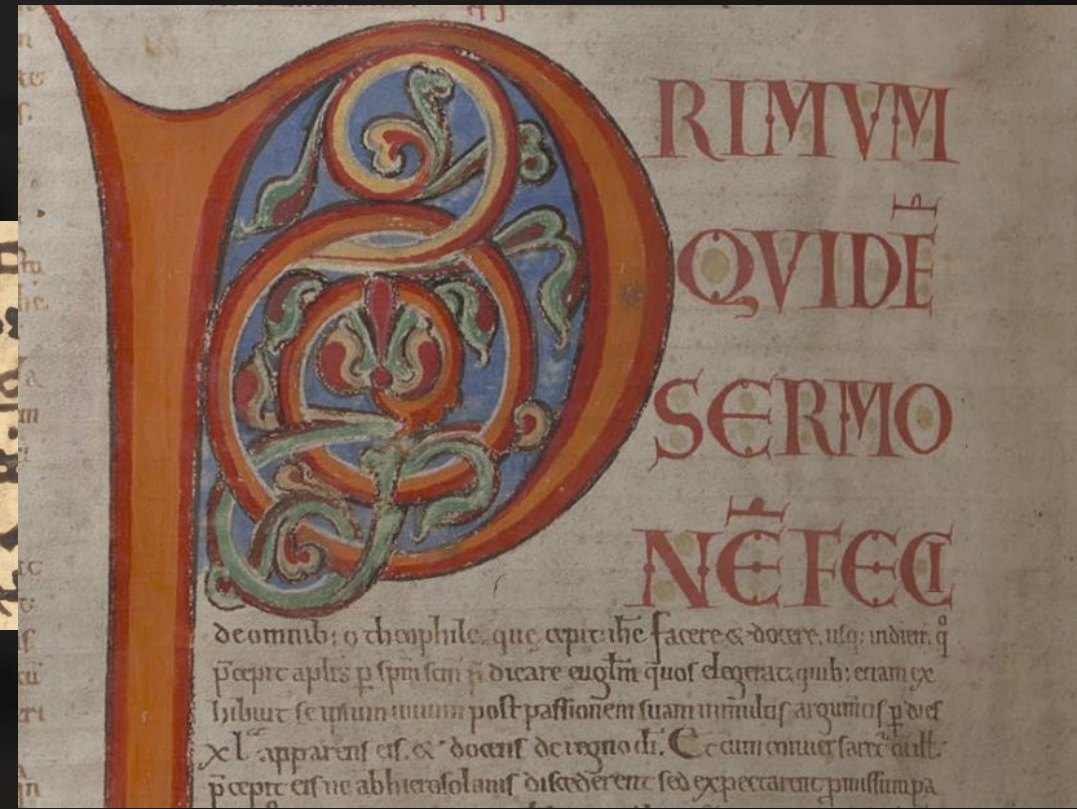 PRIMVM
QVIDE̅
SERMO
NE̅ FECI
de omnib; o theophile. que cepit ihc facere & docere. usq; in diem. q̊
p̄cepit aplis p spm scm p̄dicare euglm quos elegerat; quib; etiam ex
hibuit se ipsum uiuum post passionem suam in multis argumtis p dies
xl. apparens eis. & docens de regno di. Et cum conuersaret cū ill.
p̄cepit eis ne ab hierosolimis discederent sed expectarent pmissum pa